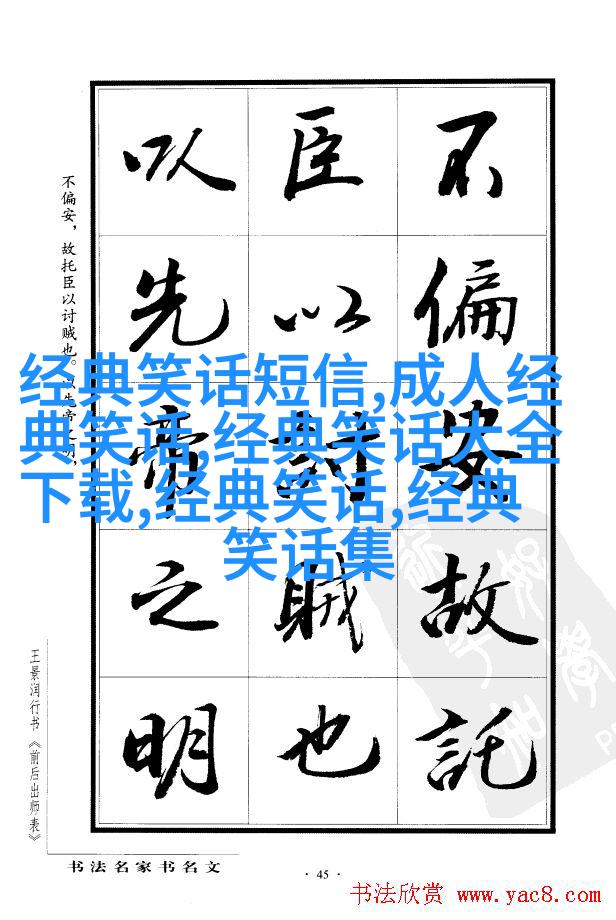 不偏安故託
臣以討賊也
以先帝之明
不偏安，故托臣以讨贼也。以先帝之明，
经典笑话短信,成人经
典笑话,经典笑话大全
下载,经典笑话,经典
笑话集
王景润行书《前后出师表》
书法名家书名文
·45·
书法欣赏 www.yac8.com